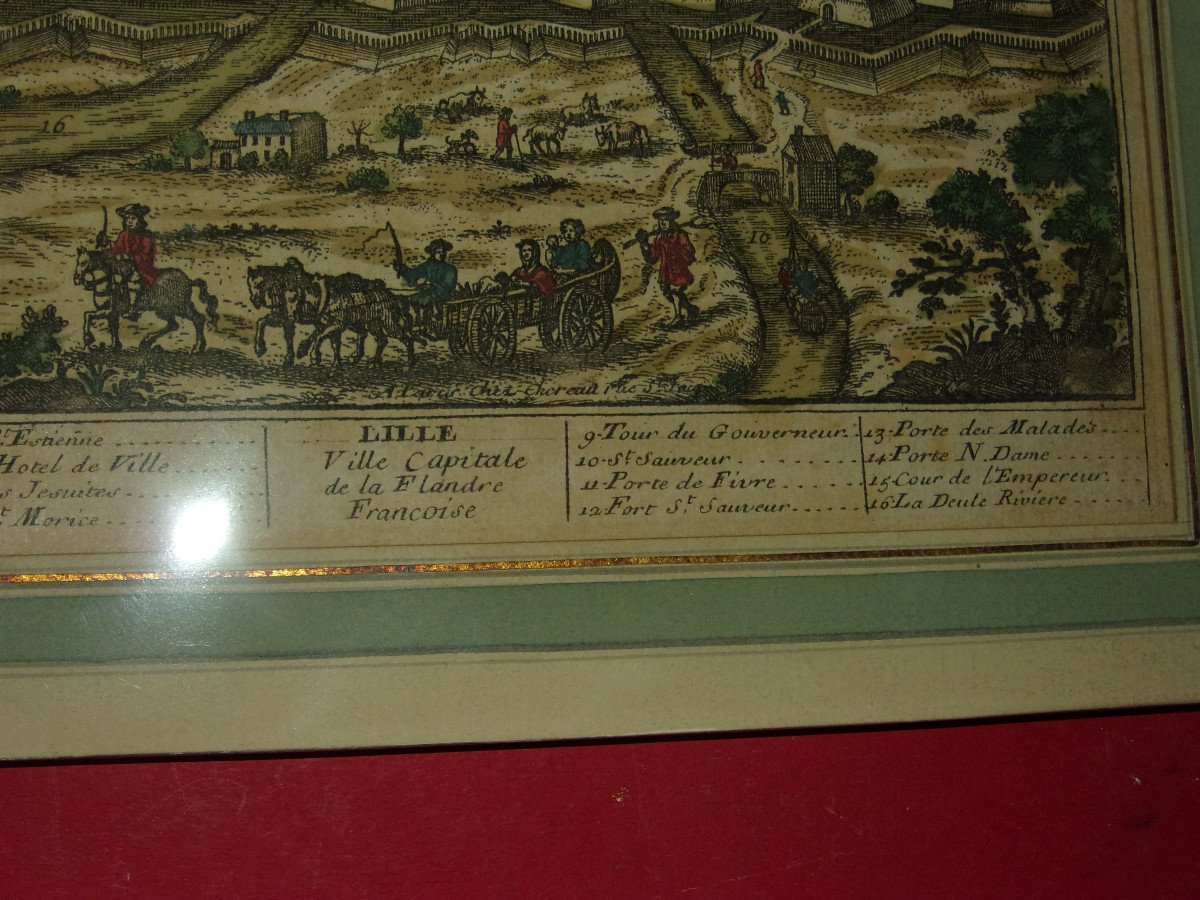 16
10
A Paris Chez Chereau rue St. Jacq
t. Estienne
Hotel de Ville
s Jesuites
t. Morice
LILLE
Ville Capitale
de la Flandre
Francoise
9. Tour du Gouverneur.
10. St. Sauveur
11. Porte de Fivre
12. Fort St. Sauveur
13. Porte des Malades
14. Porte N. Dame
15. Cour de l'Empereur
16. La Deule Riviere